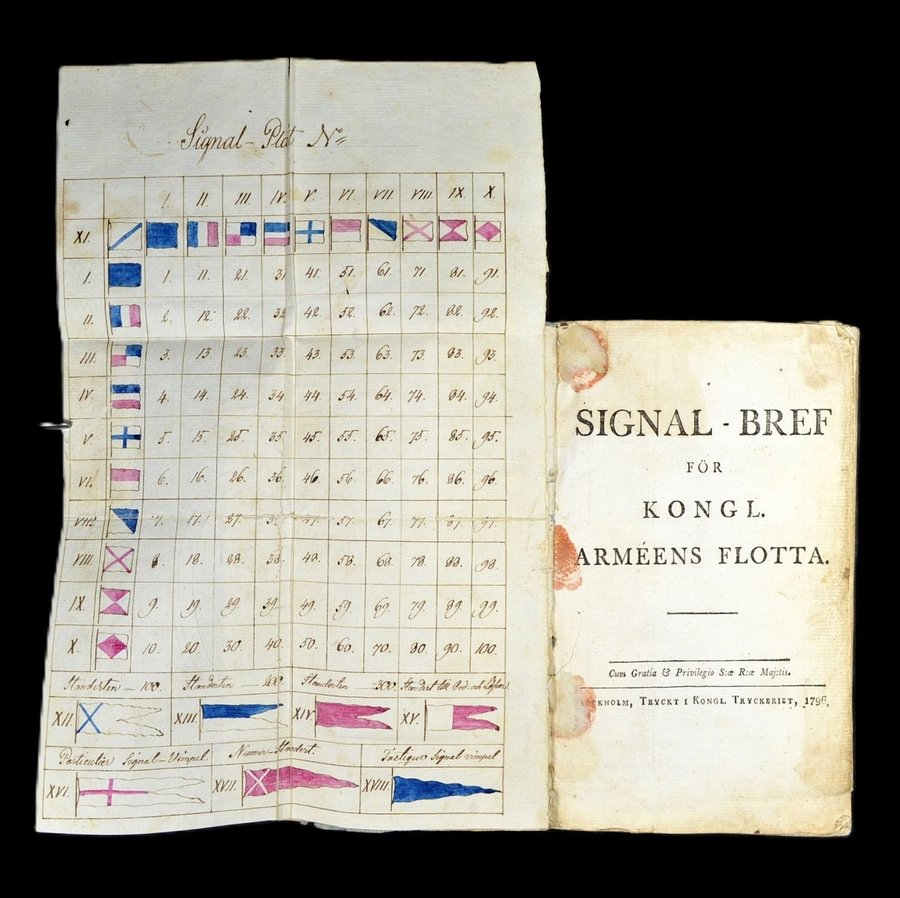 Signal-Plåt No
I. II. III. IV. V. VI. VII. VIII. IX. X.
XI.
I. 1. 11. 21. 31 41. 51. 61. 71. 81. 91.
II. 2. 12. 22. 32 42. 52. 62. 72. 82. 92.
III. 3. 13. 23. 33. 43. 53. 63. 73. 83. 93.
IV. 4. 14. 24. 34 44. 54. 64. 74. 84. 94.
V. 5. 15. 25. 35. 45. 55. 65. 75. 85. 95.
VI. 6. 16. 26. 36. 46. 56. 66. 76. 86. 96
7. 17. 27. 47. 57. 67. 77. 87. 97.
VIII. 8. 18. 28. 38. 48. 58. 68. 78. 88. 98.
IX. 9. 19. 29. 39. 49. 59. 69. 79. 89. 99.
X. 10. 20. 30. 40. 50. 60. 70. 80. 90. 100.
Standerten - 100. Standerten 200. Standerten - 300. Standert till
XII. XIII. XIV. XV.
Particulier Signal-Vimpel. Numer-Standert. Tactique Signal vimpel
XVI. XVII. XVIII.
SIGNAL - BREF
FÖR
KONGL.
ARMÉENS FLOTTA.
Cum Gratia & Privilegio S:æ R:æ Maj:tis.
STOCKHOLM, TRYCKT I KONGL. TRYCKERIET, 1796.